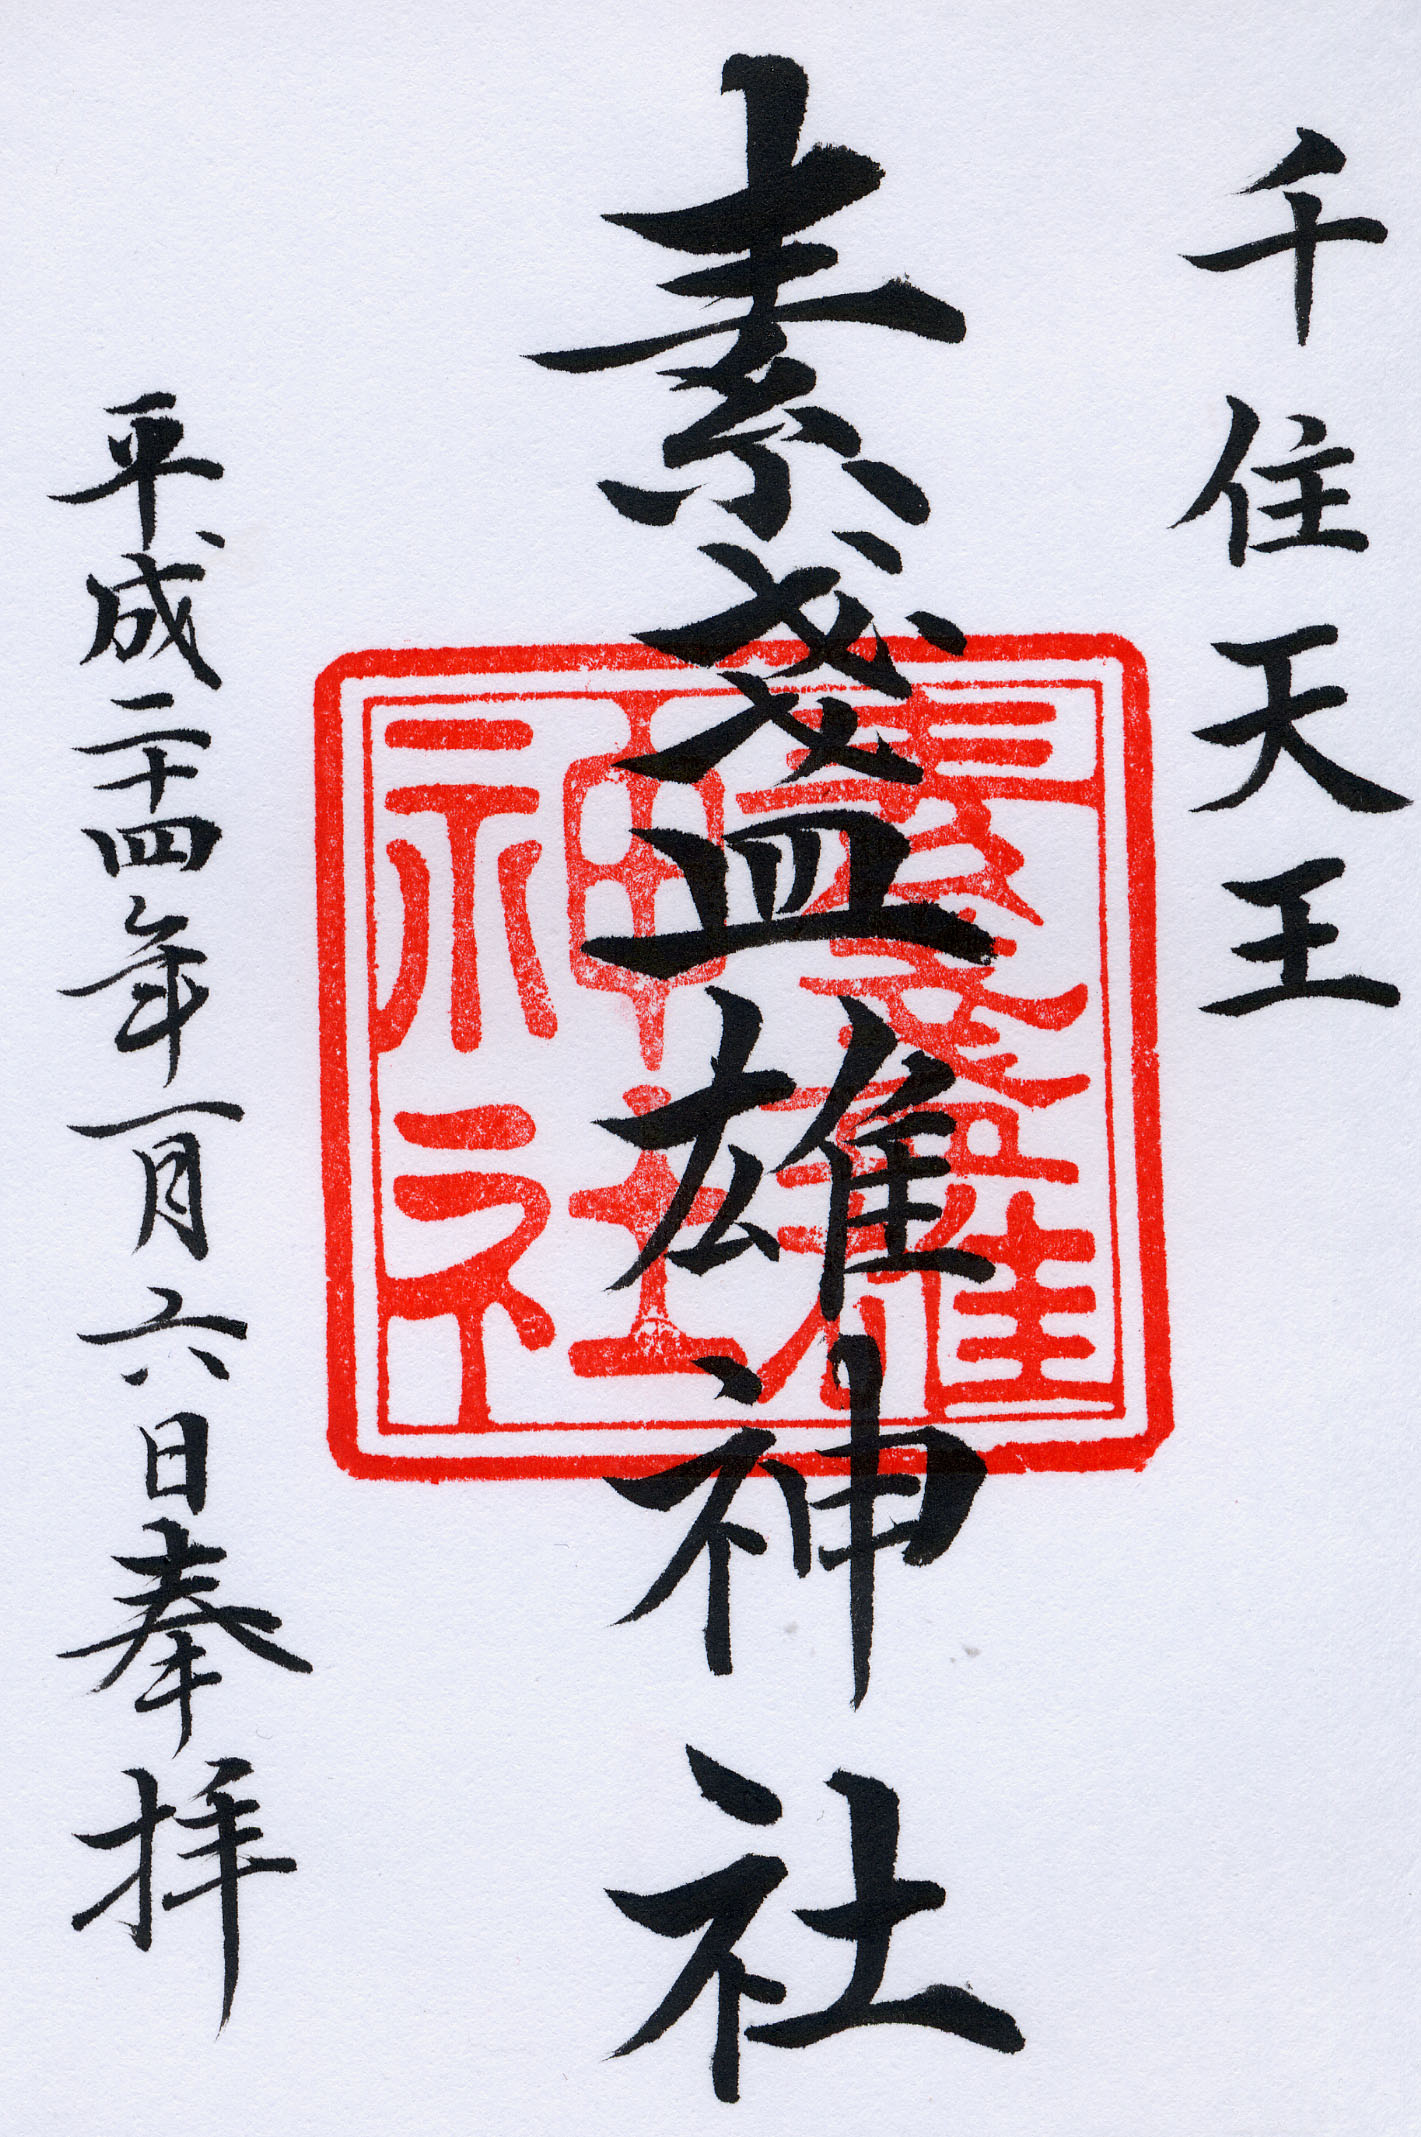 千住天王
素盞雄神社
平成二十四年一月六日奉拝
素盞雄
神社